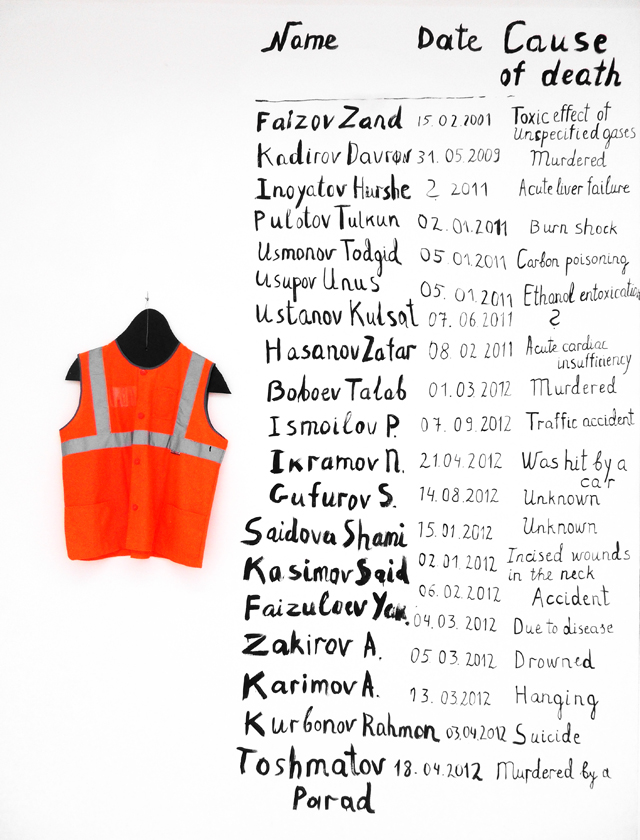 Name Date Cause of death
Faizov Zand 15.02.2001 Toxic effect of Unspecified gases
Kadirov Davron 31.05.2009 Murdered
Inoyatov Hurshe 2 2011 Acute liver failure
Pulotov Tulkun 02.01.2011 Burn shock
Usmonov Todgid 05.01.2011 Carbon poisoning
Usupov Unus 05.01.2011 Ethanol entoxication
Ustanov Kulsat 07.06.2011 ?
Hasanov Zafar 08.02 2011 Acute cardiac insufficiency
Boboev Talab 01.03.2012 Murdered
Ismoilov P. 07.09.2012 Traffic accident
Ikramov N. 21.04.2012 Was hit by a car
Gufurov S. 14.08.2012 Unknown
Saidova Shami 15.01.2012 Unknown
Kasimov Said 02.01.2012 Incised wounds in the neck
Faizuloev 06.02.2012 Accident
Zakirov A. 04.03.2012 Due to disease
Karimov A. 05 03.2012 Drowned
13.03.2012 Hanging
Kurbonov Rahmon 03.04.2012 Suicide
Toshmatov Parad 18.04.2012 Murdered by a